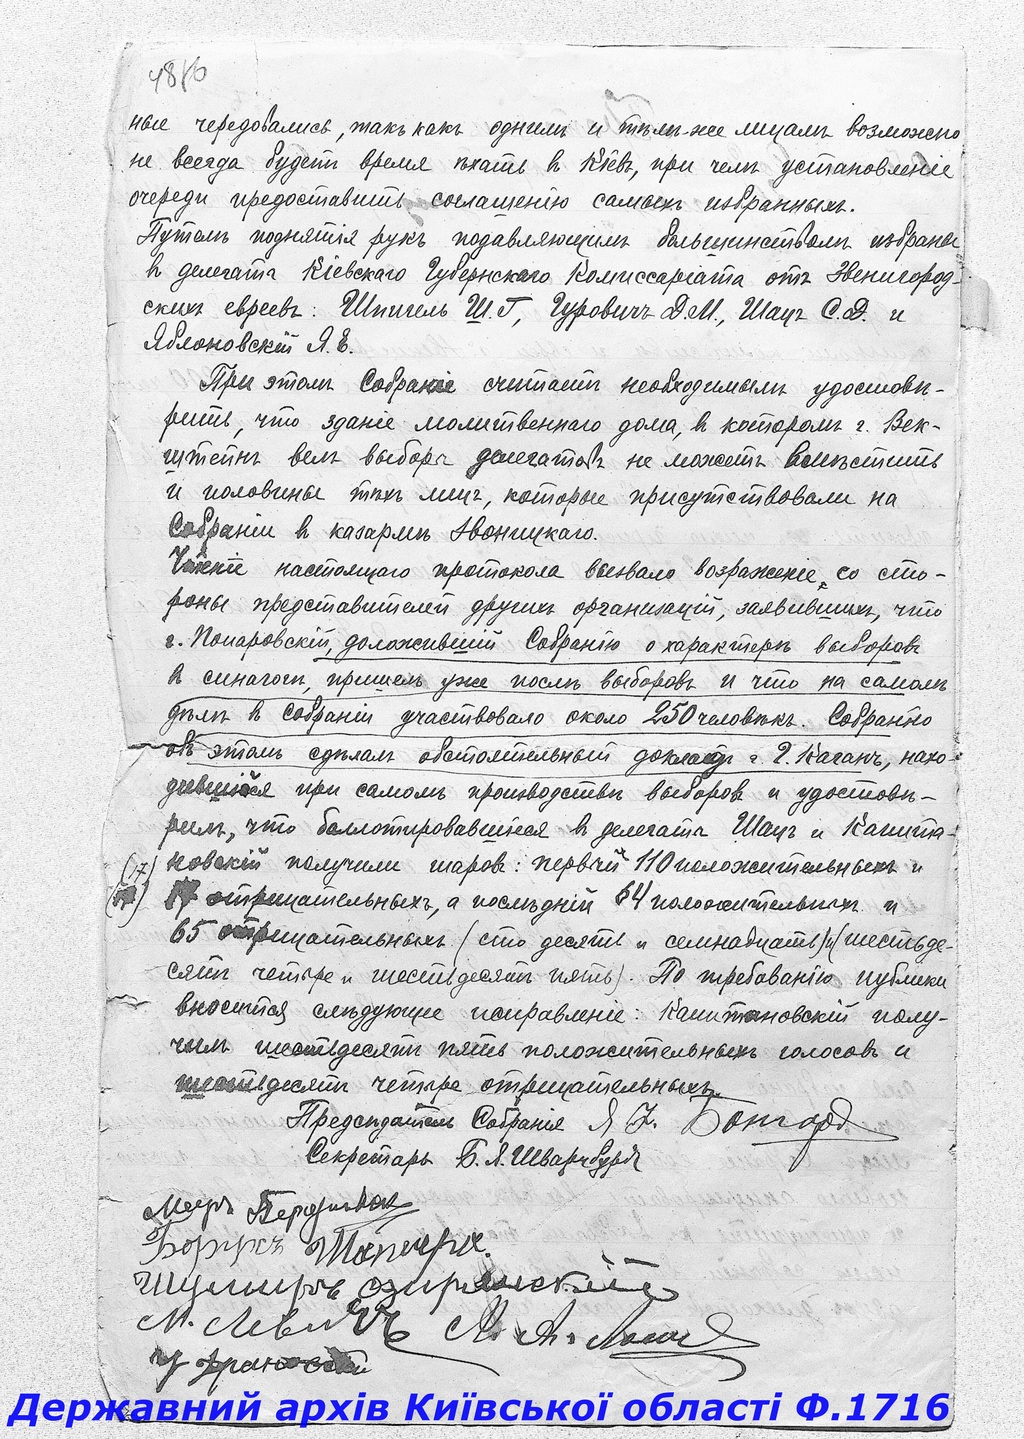 ные чередовались, такъ какъ однимъ и тѣмъ-же лицамъ возможно
не всегда будетъ время ѣхать в Кіевъ, при чемъ установленіе
очереди предоставить соглашенію самихъ избранныхъ.
Путемъ поднятія рукъ подавляющимъ большинствомъ избраны
в делегаты Кіевскаго Губернскаго Комиссаріата отъ Звенигород-
скихъ евреевъ: Шпигель Ш.Г., Гуровичъ Д.М., Шацъ С.Д. и
Яблоновскій Я.Е.
При этомъ Собраніе считаетъ необходимымъ удостовѣ-
рить, что зданіе молитвеннаго дома, в которомъ г. Век-
штейнъ велъ выборы делегатовъ не можетъ вмѣстить
и половины тѣхъ лицъ, которые присутствовали на
Собраніи в казармѣ Звоницкаго.
Чтеніе настоящаго протокола вызвало возраженіе со сто-
роны представителей другихъ организацій, заявившихъ, что
г. Понаровскій, доложившій Собранію о характерѣ выборовъ
в синагогѣ, пришелъ уже послѣ выборовъ и что на самомъ
дѣлѣ в собраніи участвовало около 250 человѣкъ. Собранію
объ этомъ сдѣлалъ обстоятельный докладъ г. Г. Каганъ, нахо-
дившійся при самомъ производствѣ выборов и удостовѣ-
рилъ, что баллотировавшіеся в делегаты Шацъ и Капита-
новскій получили шаровъ: первый 110 положительныхъ и
(17)
17 отрицательныхъ, а послѣдній 64 положительныхъ и
65 отрицательныхъ (сто десять и семнадцать) и (шестьде-
сятъ четыре и шестьдесятъ пять). По требованію публики
вносится слѣдующее исправленіе: Капитановскій полу-
чилъ шестьдесятъ пять положительныхъ голосовъ и
шестьдесятъ четыре отрицательныхъ.
Предсѣдатель Собранія Я. Бонгард
Секретарь Б.Я. Шварцбурдъ
Меиръ
М. Левичъ
Державний архів Київської області Ф.1716